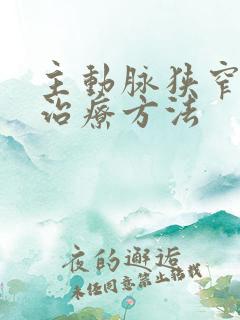 主動脉狭窄
治療方法
夜的邂逅
未经同意禁止转载